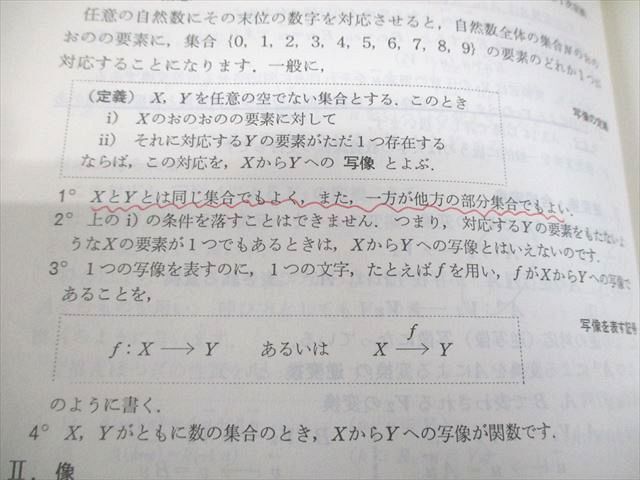 任意の自然数にその末位の数字を対応させると，自然数全体の集合Nのお
おのの要素に，集合 {0, 1, 2, 3, 4, 5, 6, 7, 8, 9} の要素のどれか1つに
対応することになります．一般に，
（定義） X, Yを任意の空でない集合とする．このとき
写像の定義
i） Xのおのおのの要素に対して
ii） それに対応するYの要素がただ1つ存在する
ならば，この対応を，XからYへの 写像 とよぶ．
1° XとYとは同じ集合でもよく，また，一方が他方の部分集合でもよい．
2° 上の i）の条件を落すことはできません．つまり，対応するYの要素をもたないよ
うなXの要素が1つでもあるときは，XからYへの写像とはいえないのです．
3° 1つの写像を表すのに，1つの文字，たとえばfを用い，fがXからYへの写像で
あることを，
写像を表す記号
f : X ⟶ Y あるいは X f⟶ Y
のように書く．
4° X, Yがともに数の集合のとき，XからYへの写像が関数です．
II．像